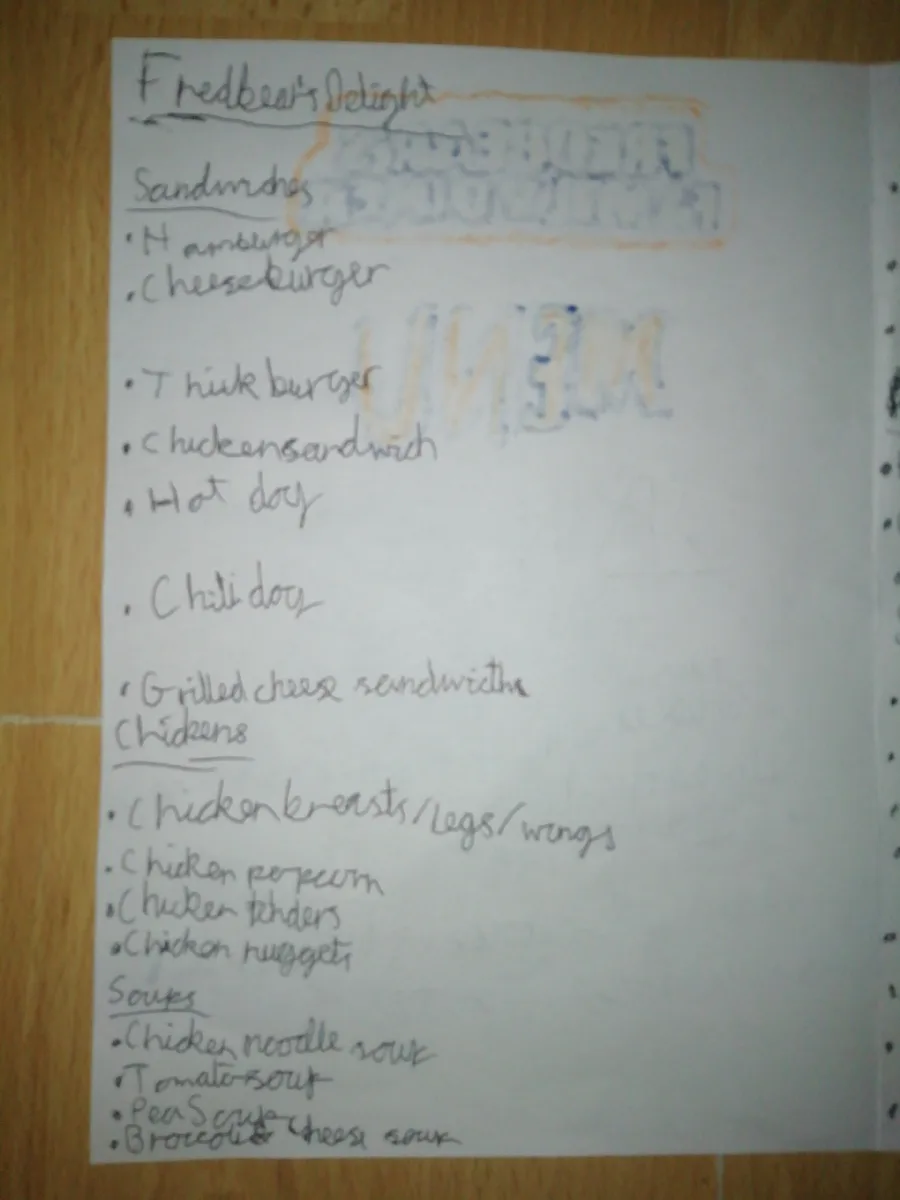 Fredbear's Delight
Sandwiches
• Hamburger
• Cheeseburger
• Thickburger
• Chickensandwich
• Hot dog
• Chili dog
• Grilled cheese sandwichs
Chickens
• Chicken breasts/legs/wings
• Chicken popcorn
• Chicken tenders
• Chicken nuggets
Soups
• Chicken noodle soup
• Tomato soup
• Pea Soup
• Broccoli & Cheese soup
FREDBEAR'S
FAMILY DINER
MENU